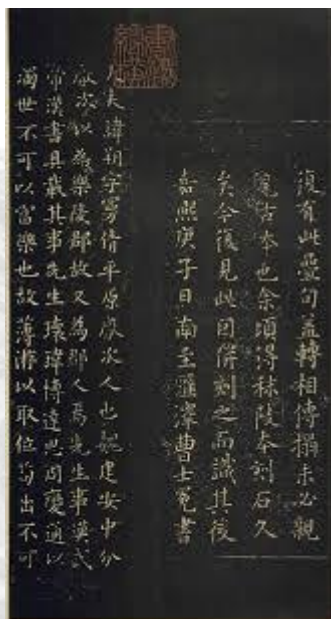 復有此疊句蓋轉相傳搨未必親
古本也余頃得秣陵本刻石久
矣今復見此因併刻之而識其後
嘉熙庚子日南至雁澤曹士冕書
大夫諱朔字曼倩平原厭次人也魏建安中分
厭次以為樂陵郡故又為郡人焉先生事漢武
帝漢書具載其事先生瓌瑋博達思周變通以
濁世不可以富樂也故薄游以取位苟出不可